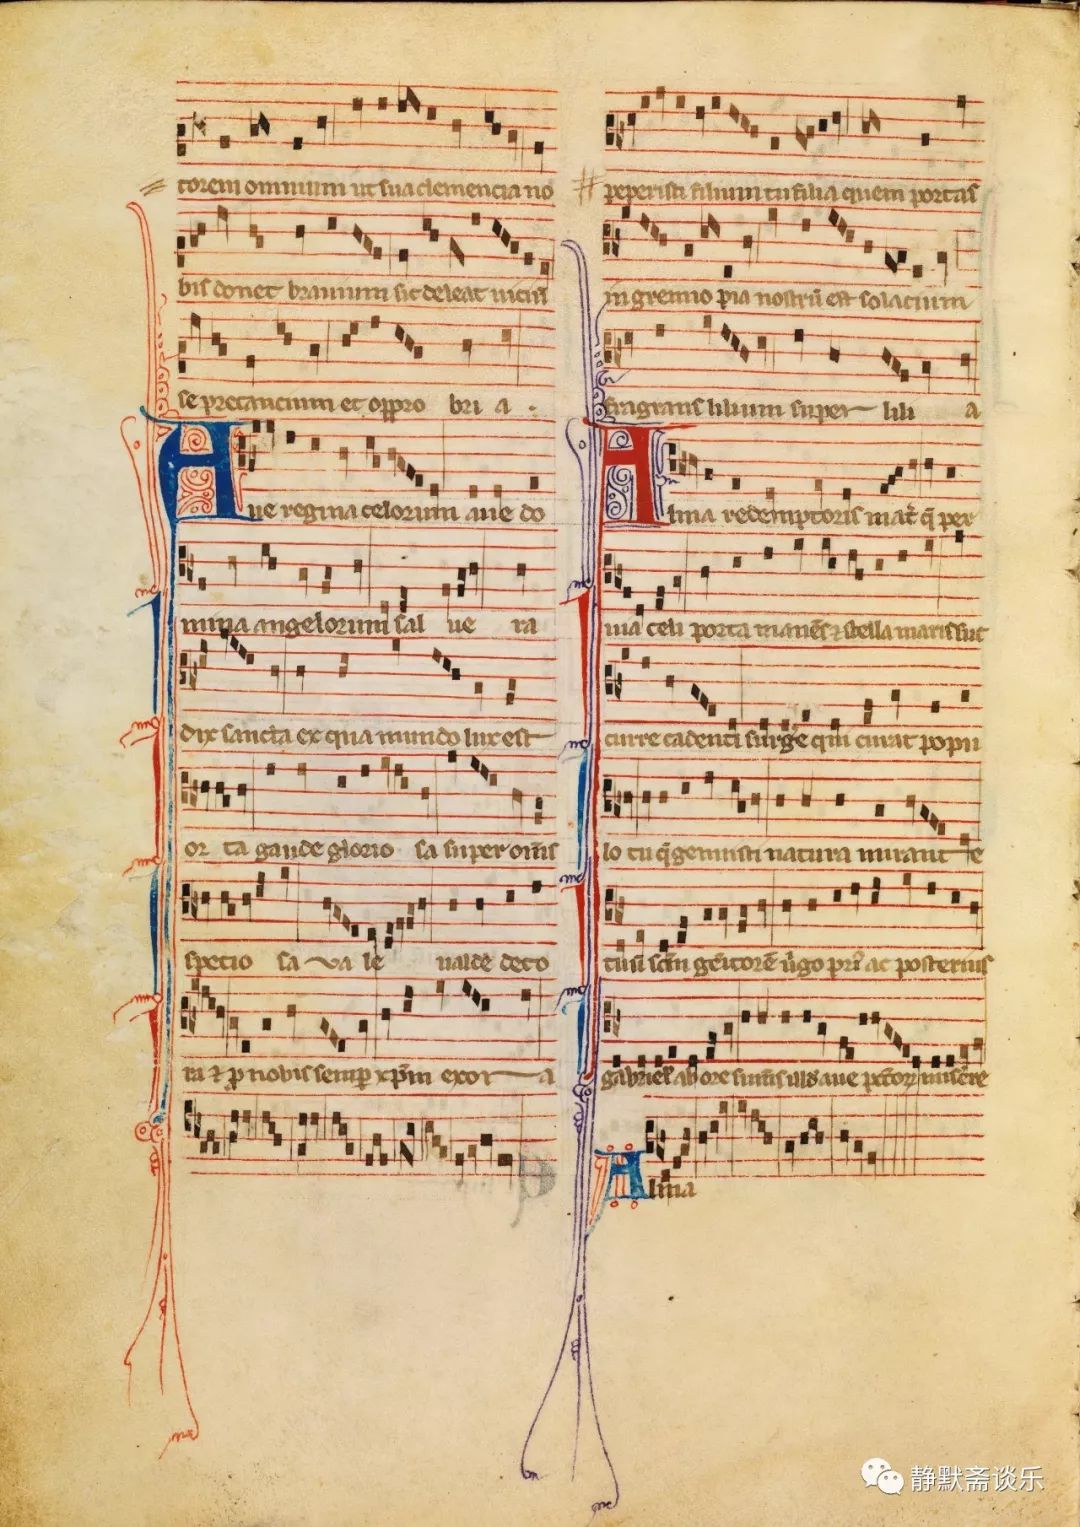 torem omnium ut sua clemencia no
bis donet bravium sic deleat viciis
se precancium et oppro bri a .
Aue regina celorum aue do
mina angelorum sal ue ra
dix sancta ex qua mundo lux est
or ta gaude glorio sa super om̄s
specio sa va le ualde deco
ra & p nobis semp xp̄m exor a
peperisti filium tu filia quem portas
in gremio pia nostrū est solacium
fragrans lilium super lili a
Alma redemptoris mat̄ q̄ per
uia celi porta manēs & stella maris suc
curre cadenti surgē qui curat popu
lo tu q̄ genuisti natura mirant e
tuū sc̄m genitorē v̄go pri᷎ ac posterius
gabriel ab ore sumēs illud aue pctor᷎ misere
Alma
静默斋谈乐